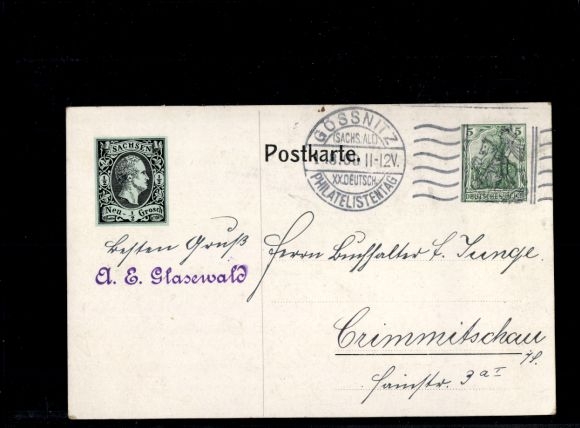 SACHSEN
½ ½
Neu- ½ Grosch
GÖSSNITZ
(SACHS. ALT.)
11-12V.
XX. DEUTSCH.
PHILATELISTENTAG
5 5
DEUTSCHES REICH
Postkarte.
besten Gruß
A. E. Glasewald
Herrn Buchhalter E. Junge.
Crimmitschau
Hainstr. 3a I